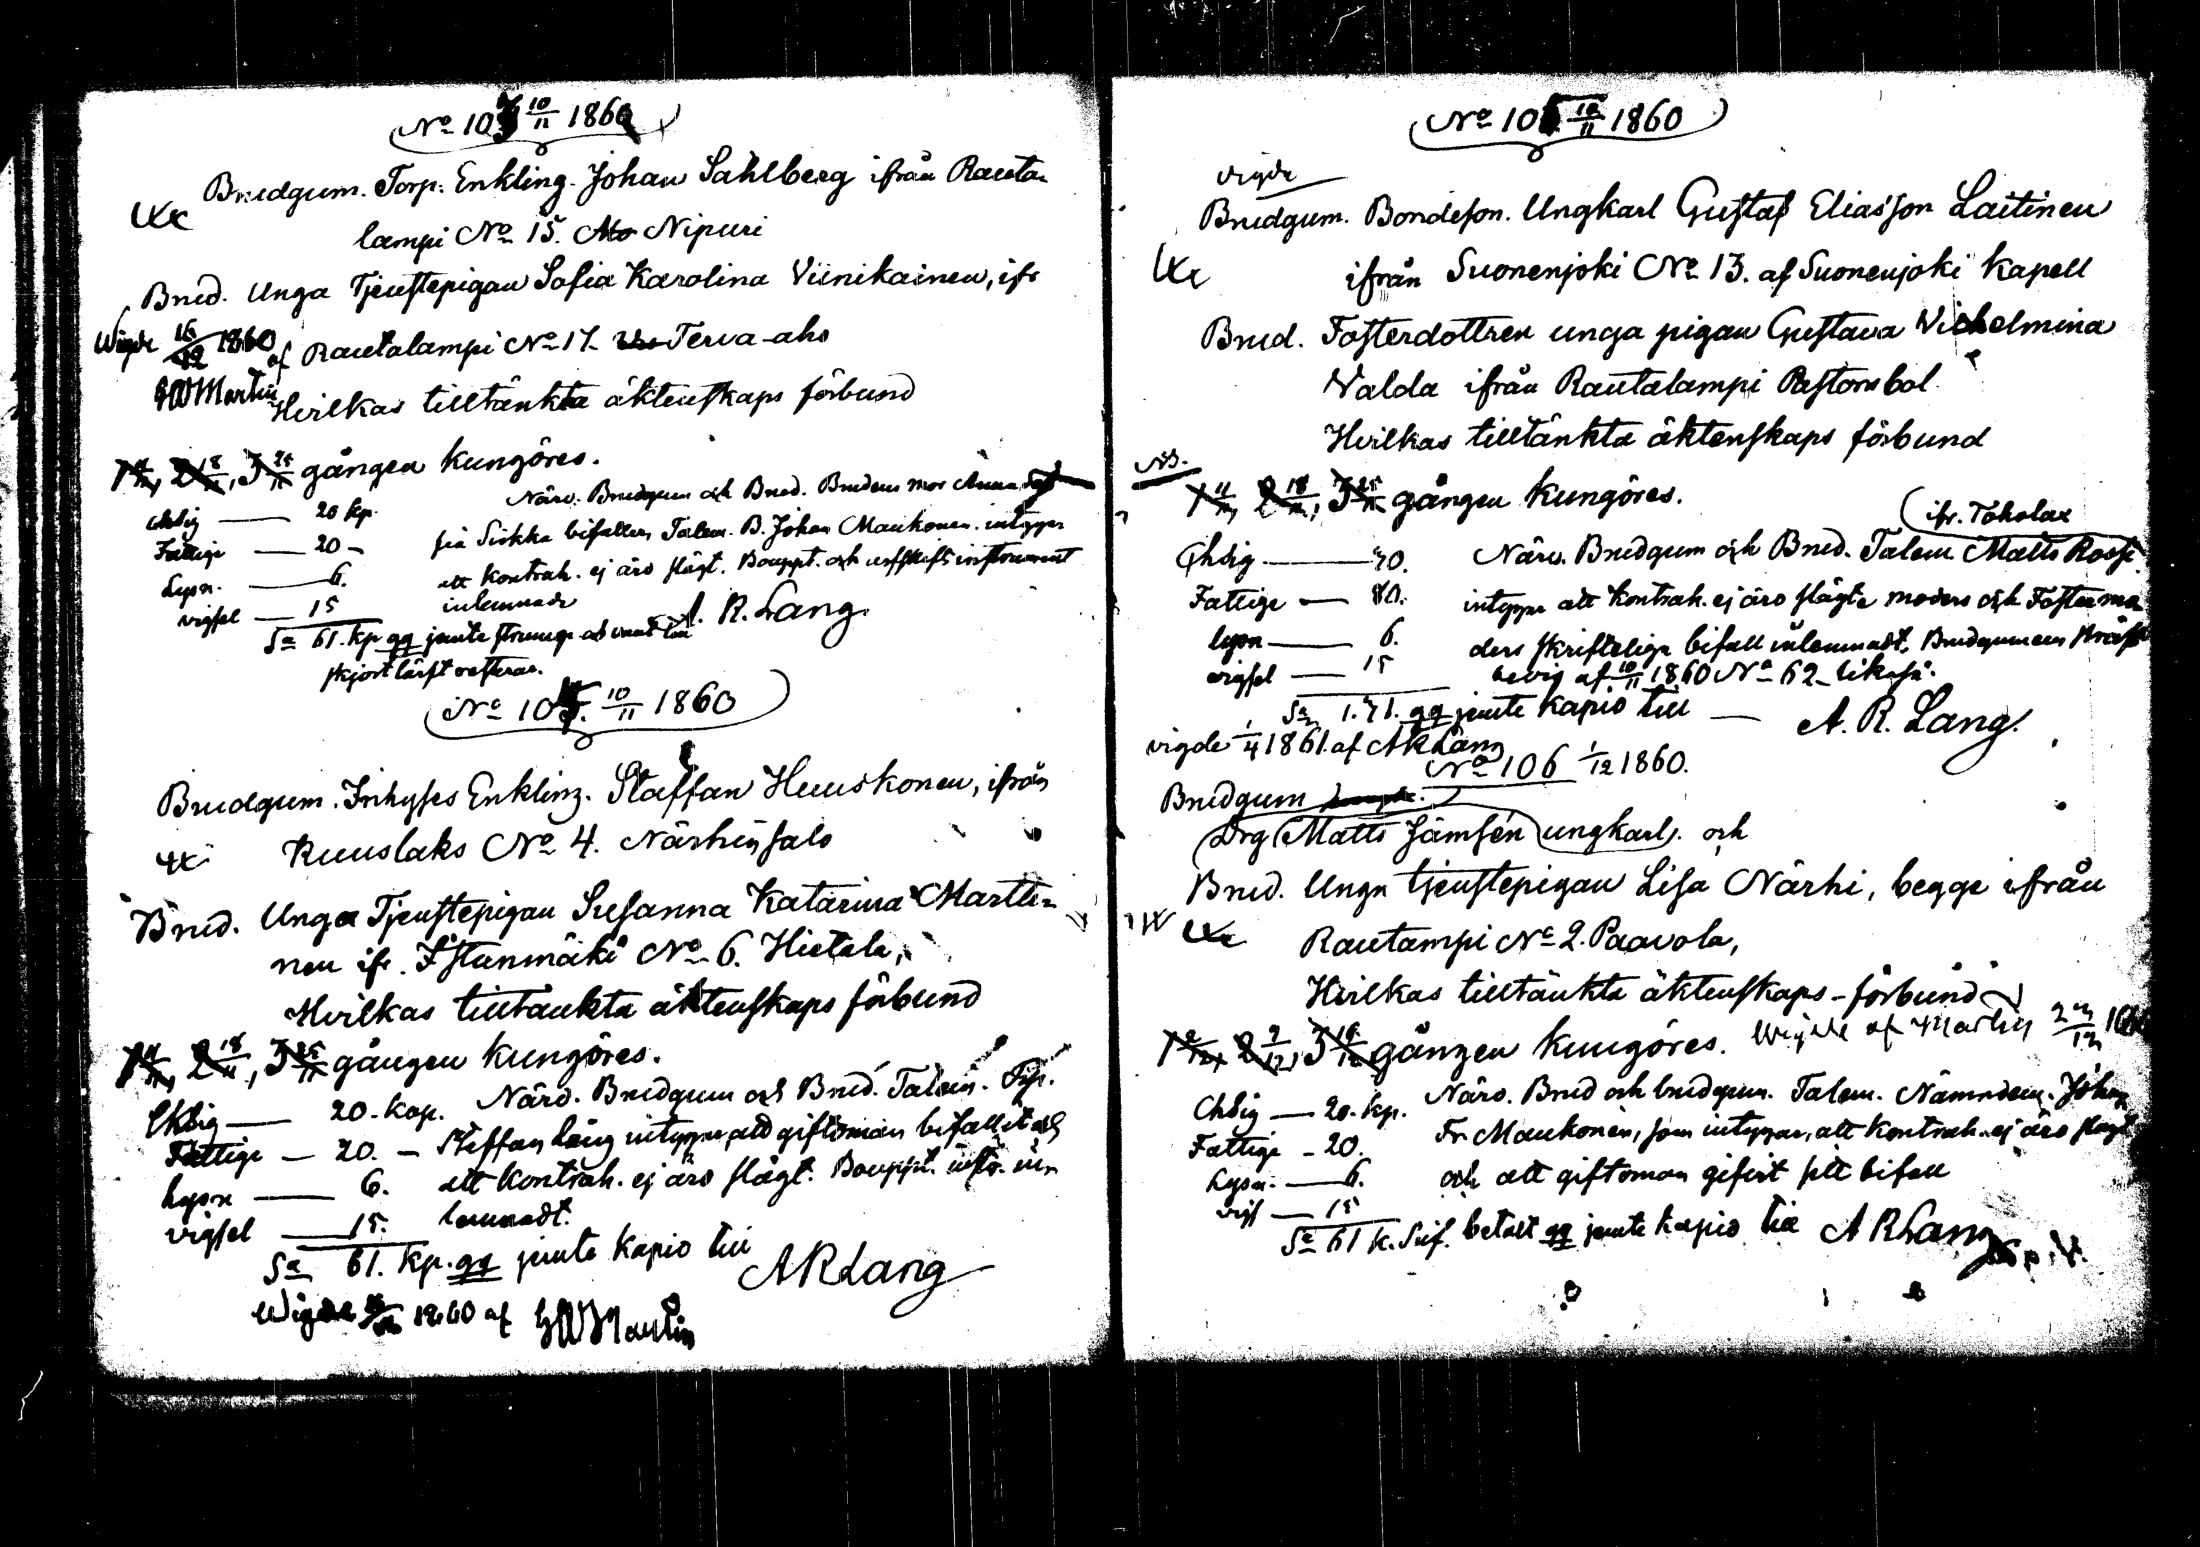 No 103 10/11 1860
Brudgum. Torp. Enkling. Johan Sahlberg ifrån Rauta-
lampi No 15. Nipuri
Brud. Unga Tjenstepigan Sofia Karolina Viinikainen, ifr
Wigde 16/12 1860 af Rautalampi No 17. Terva-aho
Martin
Hvilkas tilltänkta äktenskaps förbund
1 11/11, 2 18/11, 3 25/11 gången kungöres.
Närv. Brudgum och Brud. Brudens mor Anna
20 kp.
fia Sirkka bifaller, Talem. B. Johan Maukonen intygar
Fattige — 20 –
att Kontrah. ej äro slägt. Bouppt. och instrument
Lysn. — 6.
inlemnade
vigsel — 15
A. R. Lang.
Sa 61. kp qq jemte
skjort lärft
No 105. 10/11 1860
Brudgum. Inhyses Enkling. Staffan Huuskonen, ifrån
Kuuslaks No 4. Närhinsalo
Brud. Unga Tjenstepigan Susanna Katarina Martti-
nen ifr. Istunmäki No 6. Hietala,
Hvilkas tilltänkta äktenskaps förbund
1 11/11, 2 18/11, 3 25/11 gången kungöres.
20. kop. Närv. Brudgum och Brud. Talem.
Fattige — 20. – Steffan Läng intygar att giftoman bifallit och
Lysn — 6. att kontrah. ej äro slägt. Bouppt. instr. in-
vigsel — 15. lemnadt.
Sa 61. kp. qq jemte kapio till
A R Lang
Wigde 1860 af Martin
No 105 10/11 1860
vigde
Brudgum. Bondeson. Ungkarl Gustaf Eliasson Laitinen
ifrån Suonenjoki No 13. af Suonenjoki Kapell
Brud. Fosterdottren unga pigan Gustava Vilhelmina
Valda ifrån Rautalampi Pastorsbol
Hvilkas tilltänkta äktenskaps förbund
NB.
1 11/11, 2 18/11, 3 25/11 gången kungöres.
ifr. Tokolax
70. Närv. Brudgum och Brud. Talem Matts
Fattige — 80. intygar att Kontrah. ej äro slägte moders och Fostermo
lysn — 6. ders skrifteliga bifall inlemnadt, Brudgummens
vigsel — 15 bevis af 10/11 1860 No 62 likaså.
Sa 1.71. qq jemte kapio till — A. R. Lang.
vigde 1/4 1861. af A R Lang
No 106 1/12 1860.
Brudgum
Drg Matts Jämsén ungkarl. och
Brud. Unga tjenstepigan Lisa Närhi, begge ifrån
Rautampi No 2. Paavola,
Hvilkas tilltänkta äktenskaps-förbund
1 2/12, 2 9/12, 3 16/12 gången kungöres. Wigde af Martin
20. kp. Närv. Brud och brudgum. Talem. Nämndem. Johan
Fattige – 20. Fr. Maukonen, som intygar, att kontrah. ej äro slägt
Lysn. — 6. och att giftoman gifvit sitt bifall
vigs — 15
Sa 61 k. Silf. betalt qq jemte kapio till A R Lang